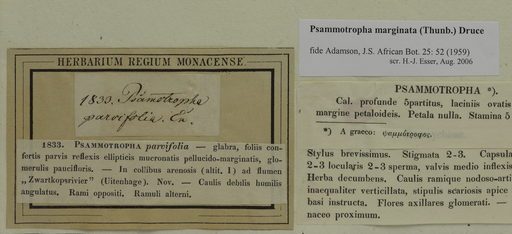 HERBARIUM REGIUM MONACENSE
1833. Psamotropha
parvifolia. Eu.
1833. PSAMMOTROPHA parvifolia — glabra, foliis con-
fertis parvis reflexis ellipticis mucronatis pellucido-marginatis, glo-
merulis paucifloris. — In collibus arenosis (altit. I) ad flumen
„Zwartkopsrivier” (Uitenhage). Nov. — Caulis debilis humilis
angulatus. Rami oppositi. Ramuli alterni.
Psammotropha marginata (Thunb.) Druce
fide Adamson, J.S. African Bot. 25: 52 (1959)
scr. H.-J. Esser, Aug. 2006
PSAMMOTROPHA *).
Cal. profunde 5partitus, laciniis ovatis
margine petaloideis. Petala nulla. Stamina 5
*) A graeco: ψαμμότροφος.
Stylus brevissimus. Stigmata 2-3. Capsula
2-3 locularis 2-3 sperma, valvis medio inflexis
Herba decumbens. Caulis ramique nodoso-arti
inaequaliter verticillata, stipulis scariosis apice
basi instructa. Flores axillares glomerati. —
naceo proximum.